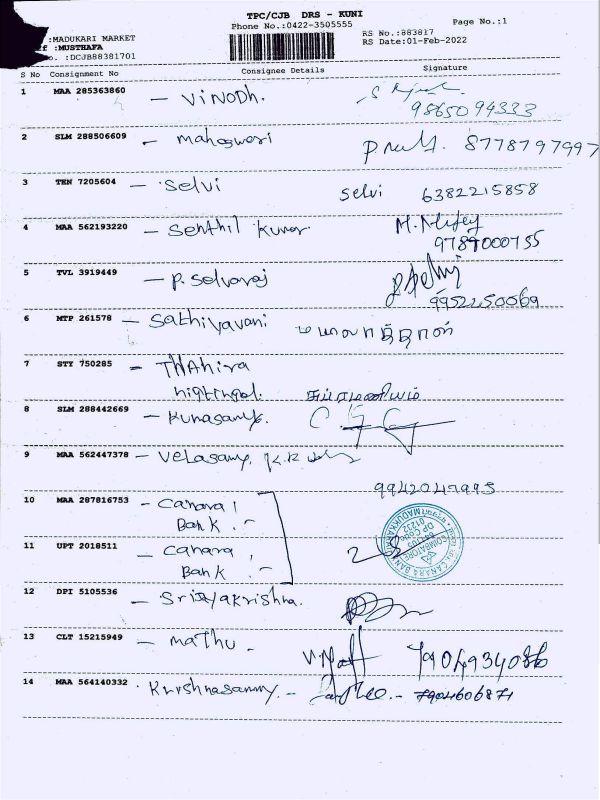 TPC/CJB DRS - KUNI
Phone No.:0422-3505555
Page No.:1
:MADUKARI MARKET
:MUSTHAFA
:DCJB88381701
RS No.:883817
RS Date:01-Feb-2022
S No Consignment No Consignee Details Signature
1 MAA 285363860 - Vinodh.
9865094333
2 SLM 288506609 - Maheswari 8778797997
3 TEN 7205604 - Selvi selvi 6382215858
4 MAA 562193220 - Senthil Kumar
9789000755
5 TVL 3919449 - P. Selvaraj
9952250069
6 MTP 261578 - Sathiyavani
7 STY 750285 - THAhira
சுப்ரமணியம்
8 SLM 288442669 - Kunasamy.
9 MAA 562447378 - Velasamy.
9942047995
10 MAA 287816753 - Canara
Bank. -
11 UPT 2018511 - Canara
Bank. -
12 DPI 5105536
13 CLT 15215949 - Mathu - 7904934086
14 MAA 564140332 Krishnasammy - 7904606871